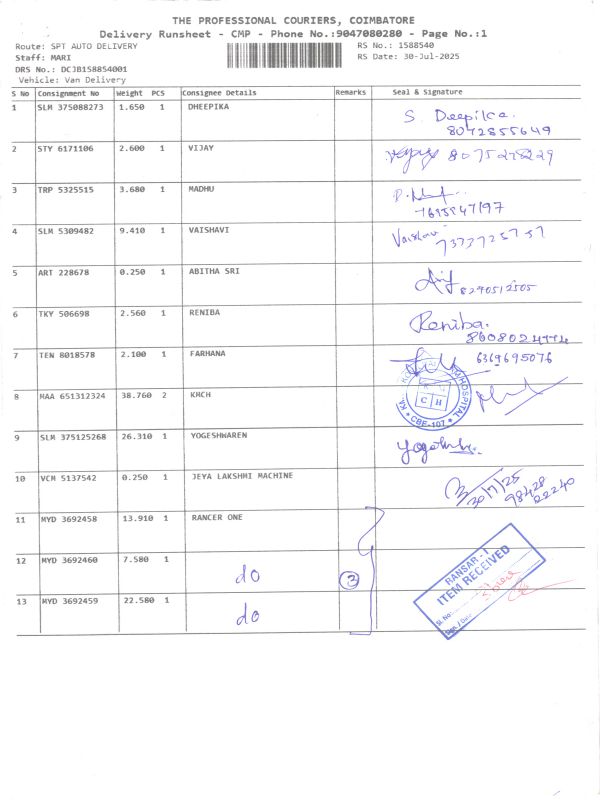 THE PROFESSIONAL COURIERS, COIMBATORE
Delivery Runsheet - CMP - Phone No.:9047080280 - Page No.:1
Route: SPT AUTO DELIVERY RS No.: 1588540
Staff: MARI RS Date: 30-Jul-2025
DRS No.: DCJB158854001
Vehicle: Van Delivery
S No Consignment No Weight PCS Consignee Details Remarks Seal & Signature
1 SLM 375088273 1.650 1 DHEEPIKA S. Deepika.
8072855649
2 STY 6171106 2.600 1 VIJAY
3 TRP 5325515 3.680 1 MADHU
4 SLM 5309482 9.410 1 VAISHAVI Vaishavi
5 ART 228678 0.250 1 ABITHA SRI
8290512505
6 TKY 506698 2.560 1 RENIBA Reniba.
7 TEN 8018578 2.100 1 FARHANA 6369695076
8 MAA 651312324 38.760 2 KMCH
HOSPITAL
C H
CBE-107
9 SLM 375125268 26.310 1 YOGESHWAREN
10 VCM 5137542 0.250 1 JEYA LAKSHMI MACHINE
30/7/25
98428
22240
11 MYD 3692458 13.910 1 RANCER ONE
12 MYD 3692460 7.580 1 do 3
13 MYD 3692459 22.580 1 do
RANSAR - I
ITEM RECEIVED
Sl.No: